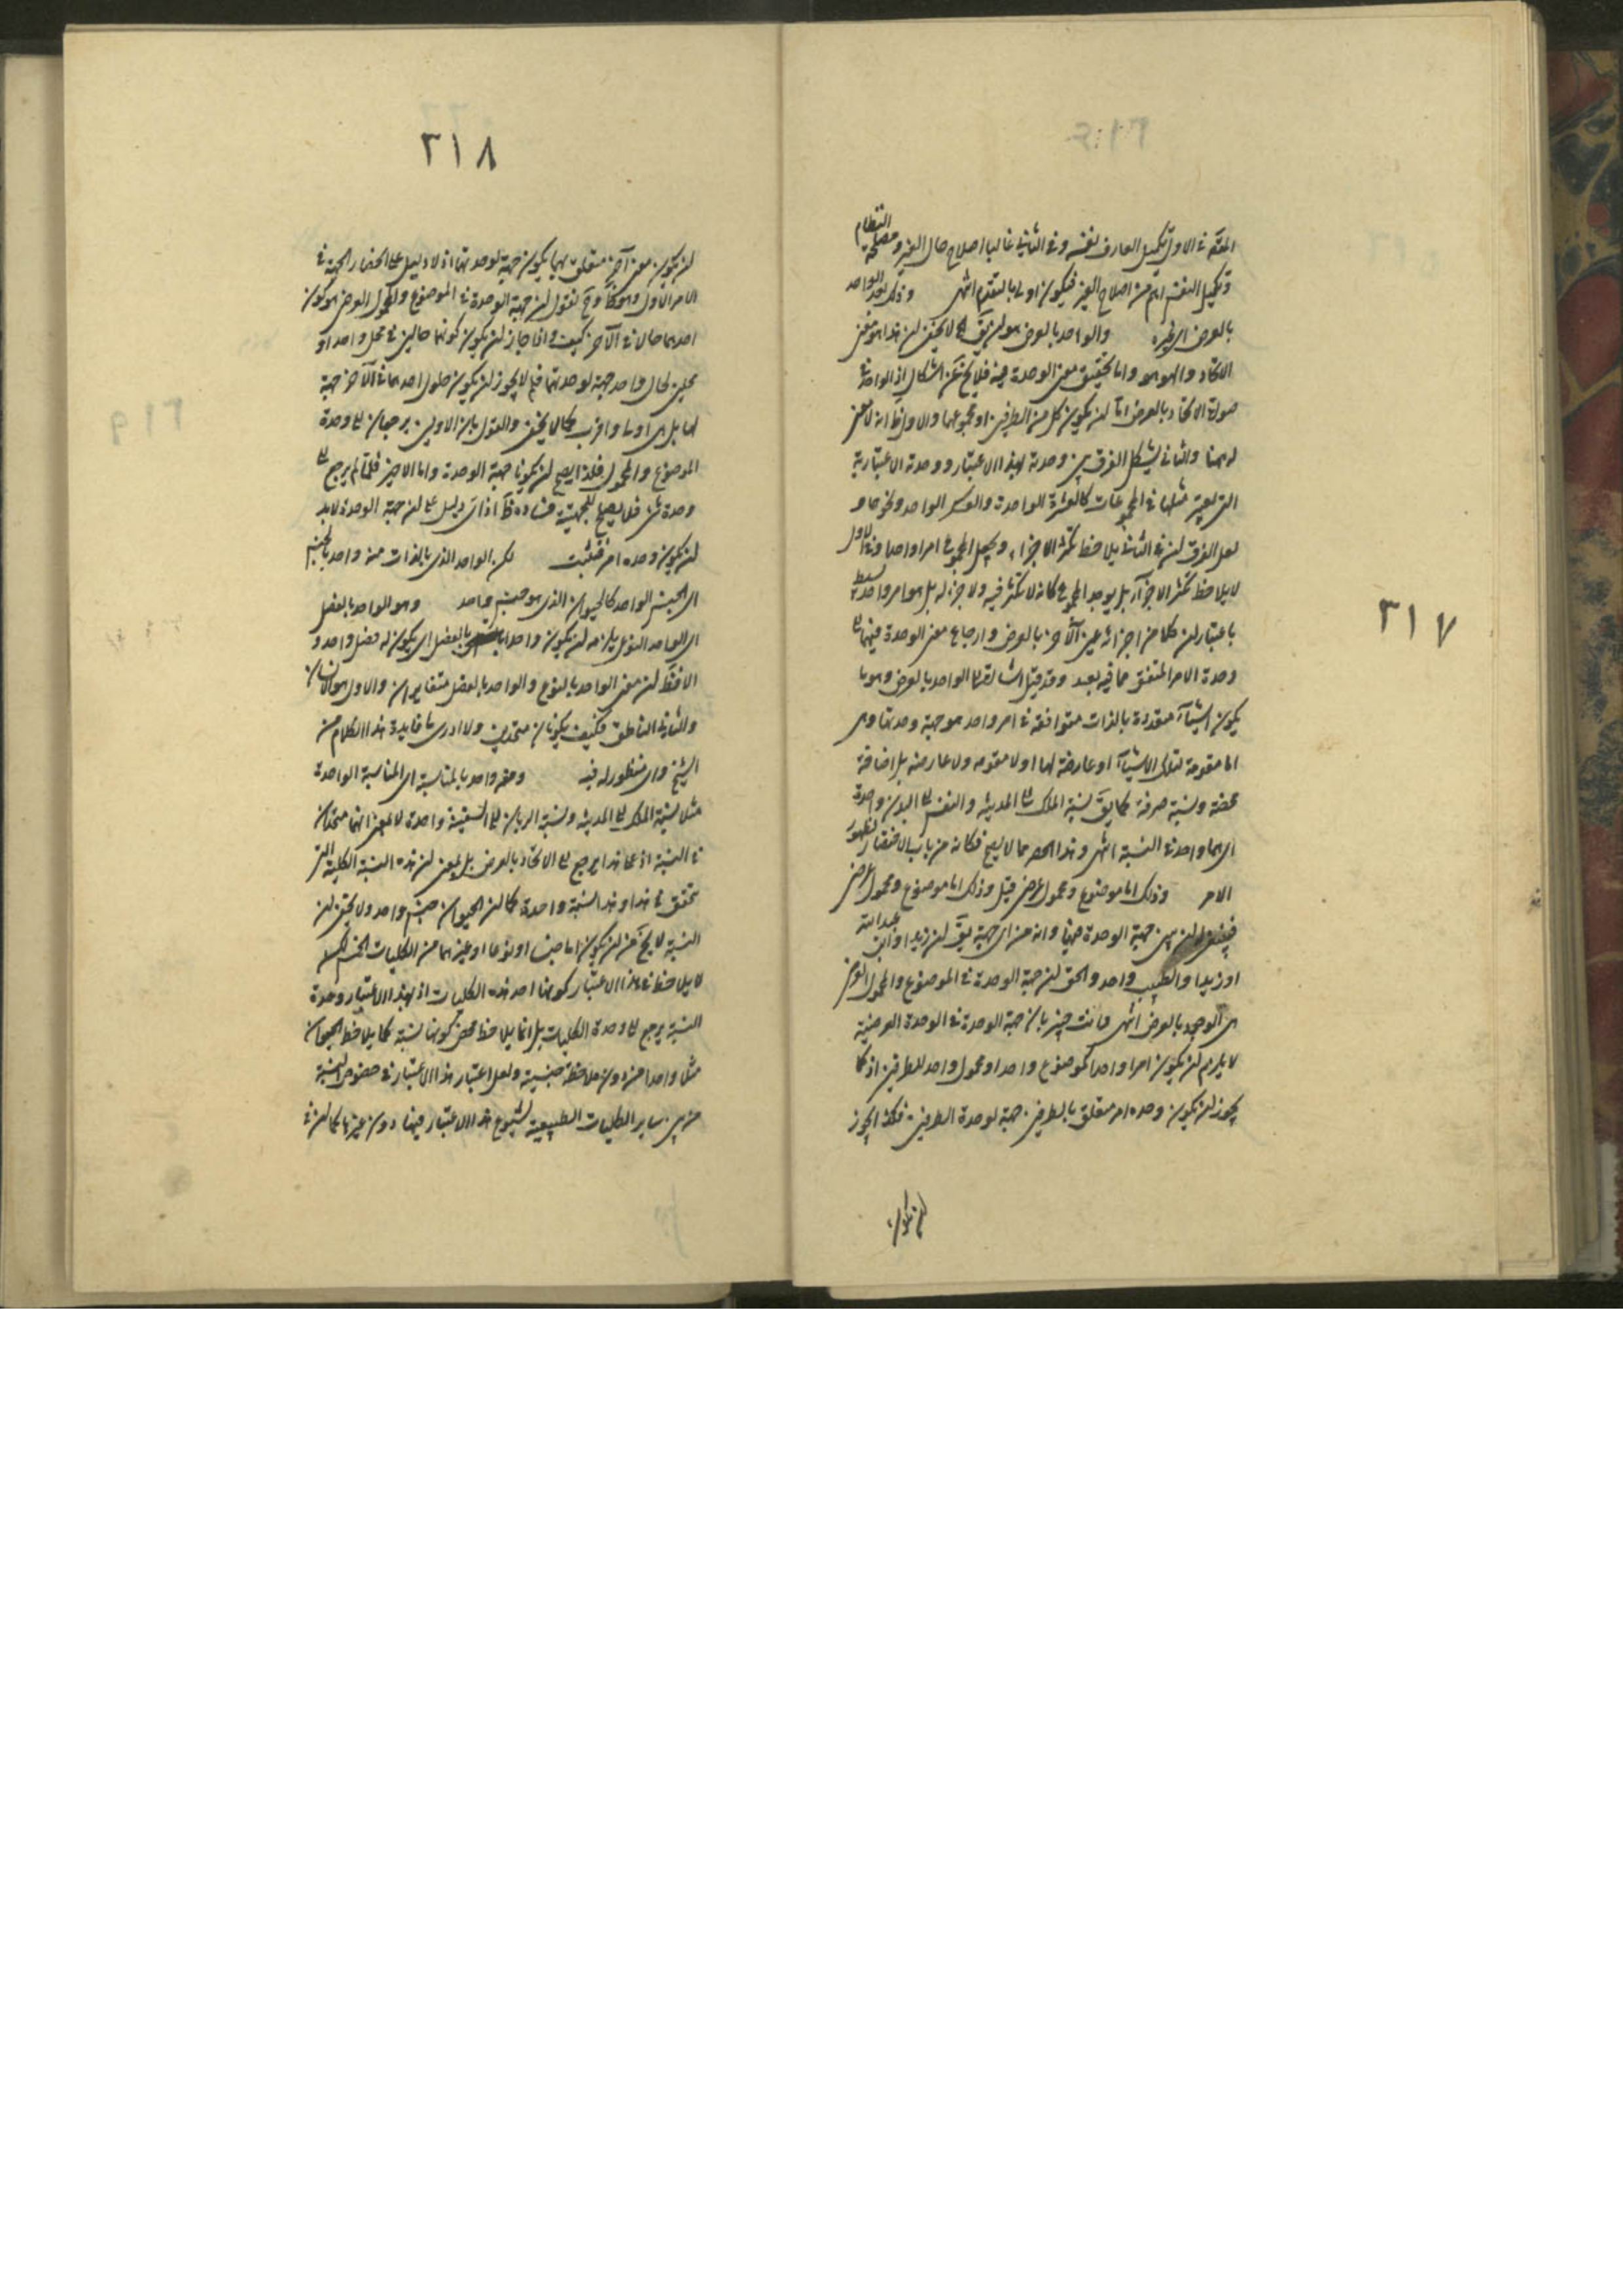 ٣١٧
المتم في الاول تكميل العارف نفسه وفي الثاني غالبا اصلاح حال الغير ومصلحة النظام
وتكميل النفس اتم من اصلاح الغير فيكون اولى بالتقديم انتهى وذلك لان الواحد
بالعرض الى آخره والواحد بالعرض هو ان يق الخ لا يخفى ان هذا هو معنى
الاتحاد والهوهو واما تحقيق معنى الوحدة فيه فلا يخ عن اشكال اذ الواحد في
صورة الاتحاد بالعرض اما ان يكون كل من الطرفين او مجموعهما والاول ظ انه لا معنى
له ههنا والثاني يشكل الفرق بين وحدته بهذا الاعتبار ووحدة الاعتبارية
التي يعتبر مثلها في المجموعات كالعشرة الواحدة والعسكر الواحد ونحوهما و
لعل الفرق ان في الثاني يلاحظ تكثر الاجزاء ويجعل المجموع امرا واحدا وفي الاول
لا يلاحظ تكثر الاجزآء بل يوجد المجموع كانه لا تكثر فيه ولا جزء له بل هو امر واحد بسيط
باعتبار ان كلا من اجزائه عين الآخر بالعرض وارجاع معنى الوحدة فيهما الى
وحدة الامر المتفق مما فيه بعد وقد قيل اشارة الى الواحد بالعرض وهو ما
يكون اشيآء متعددة بالذات متوافقة في امر واحد هو جهة وحدتها وهي
اما مقومة لتلك الاشيآء او عارضة لها او لا مقومة ولا عارضة بل اضافة
محضة ونسبة صرفة كما يق نسبة الملك الى المدينة والنفس الى البدن واحدة
اي هما واحد في النسبة انتهى وهذا الحصر مما لا يصح فكانه من باب الاقتصار لظهور
الامر وذلك اما موضوع ومحمول عرضي قيل وذلك اما موضوع ومحمول عرضي
جهة الوحدة فيها وانه من اي جهة يق ان زيدا وابن عبدالله
او زيدا والطبيب واحد والحق ان جهة الوحدة في الموضوع والمحمول العرضي
هي الوجود بالعرض انتهى وانت خبير بان جهة الوحدة في الوحدة العرضية
لا يلزم ان يكون امرا واحدا كموضوع واحد او محمول واحد للطرفين اذ كما
يجوز ان يكون وحدة امر متعلق بالطرفين جهة لوحدة الطرفين فكذا يجوز
ان يكون
٣١٨
ان يكون معنى آخر متعلق بهما يكون جهة لوحدتهما اذ لا دليل على انحصار الجهة في
الامر الاول وهو ظ وح نقول ان جهة الوحدة في الموضوع والمحمول العرضي هو كون
احدهما حالا في الآخر كيف واذا جاز ان يكون كونهما حالين في محل واحد او
محلين لحال واحد جهة لوحدتهما فلم لا يجوز ان يكون حلول احدهما في الآخر جهة
لها بل هي اولى واقرب كما لا يخفى والقول بان الاولين يرجعان الى وحدة
الموضوع والمحمول فلذا يصح ان يكونا جهة الوحدة واما الاخير فلما لم يرجع الى
وحدة شئ فلا يصلح للجهتية فساده ظ اذ اي دليل على ان جهة الوحدة لا بد
ان يكون وحدة امر فتثبت لكن الواحد الذي بالذات منه واحد بالجنس
اي الجنس الواحد كالحيوان الذي هو جنس واحد وهو الواحد بالفصل
اي الواحد النوعي يلزمه ان يكون واحدا بالفصل اي يكون له فصل واحد و
الا فظ ان معنى الواحد بالنوع والواحد بالفصل متغايران والاول هو الانسان
والثاني الناطق فكيف يكونان متحدين ولا ادري ما فايدة هذا الكلام من
الشيخ واي منظور له فيه ومنه واحد بالمناسبة اي المناسبة الواحدة
مثل نسبة الملك الى المدينة ونسبة الربان الى السفينة واحدة لا بمعنى انهما متحدان
في النسبة اذ على هذا يرجع الى الاتحاد بالعرض بل بمعنى ان هذه النسبة الكلية التي
تتحقق في هذا وهذا نسبة واحدة كما ان الحيوان جنس واحد ولا يخفى ان
النسبة لا يخ من ان يكون اما جنسا او نوعا او غيرهما من الكليات الخمس لكن
لا يلاحظ في هذا الاعتبار كونها احد هذه الكليات اذ بهذا الاعتبار وحدة
النسبة يرجع الى وحدة الكليات بل انما يلاحظ محض كونها نسبة كما يلاحظ الحيوان
مثلا واحدا من دون ملاحظة جنسية ولعل اعتبار هذا الاعتبار في خصوص النسبة
من بين ساير الكليات الطبيعية لشيوع هذا الاعتبار فيها دون غيرها كما ان في
٣١٩